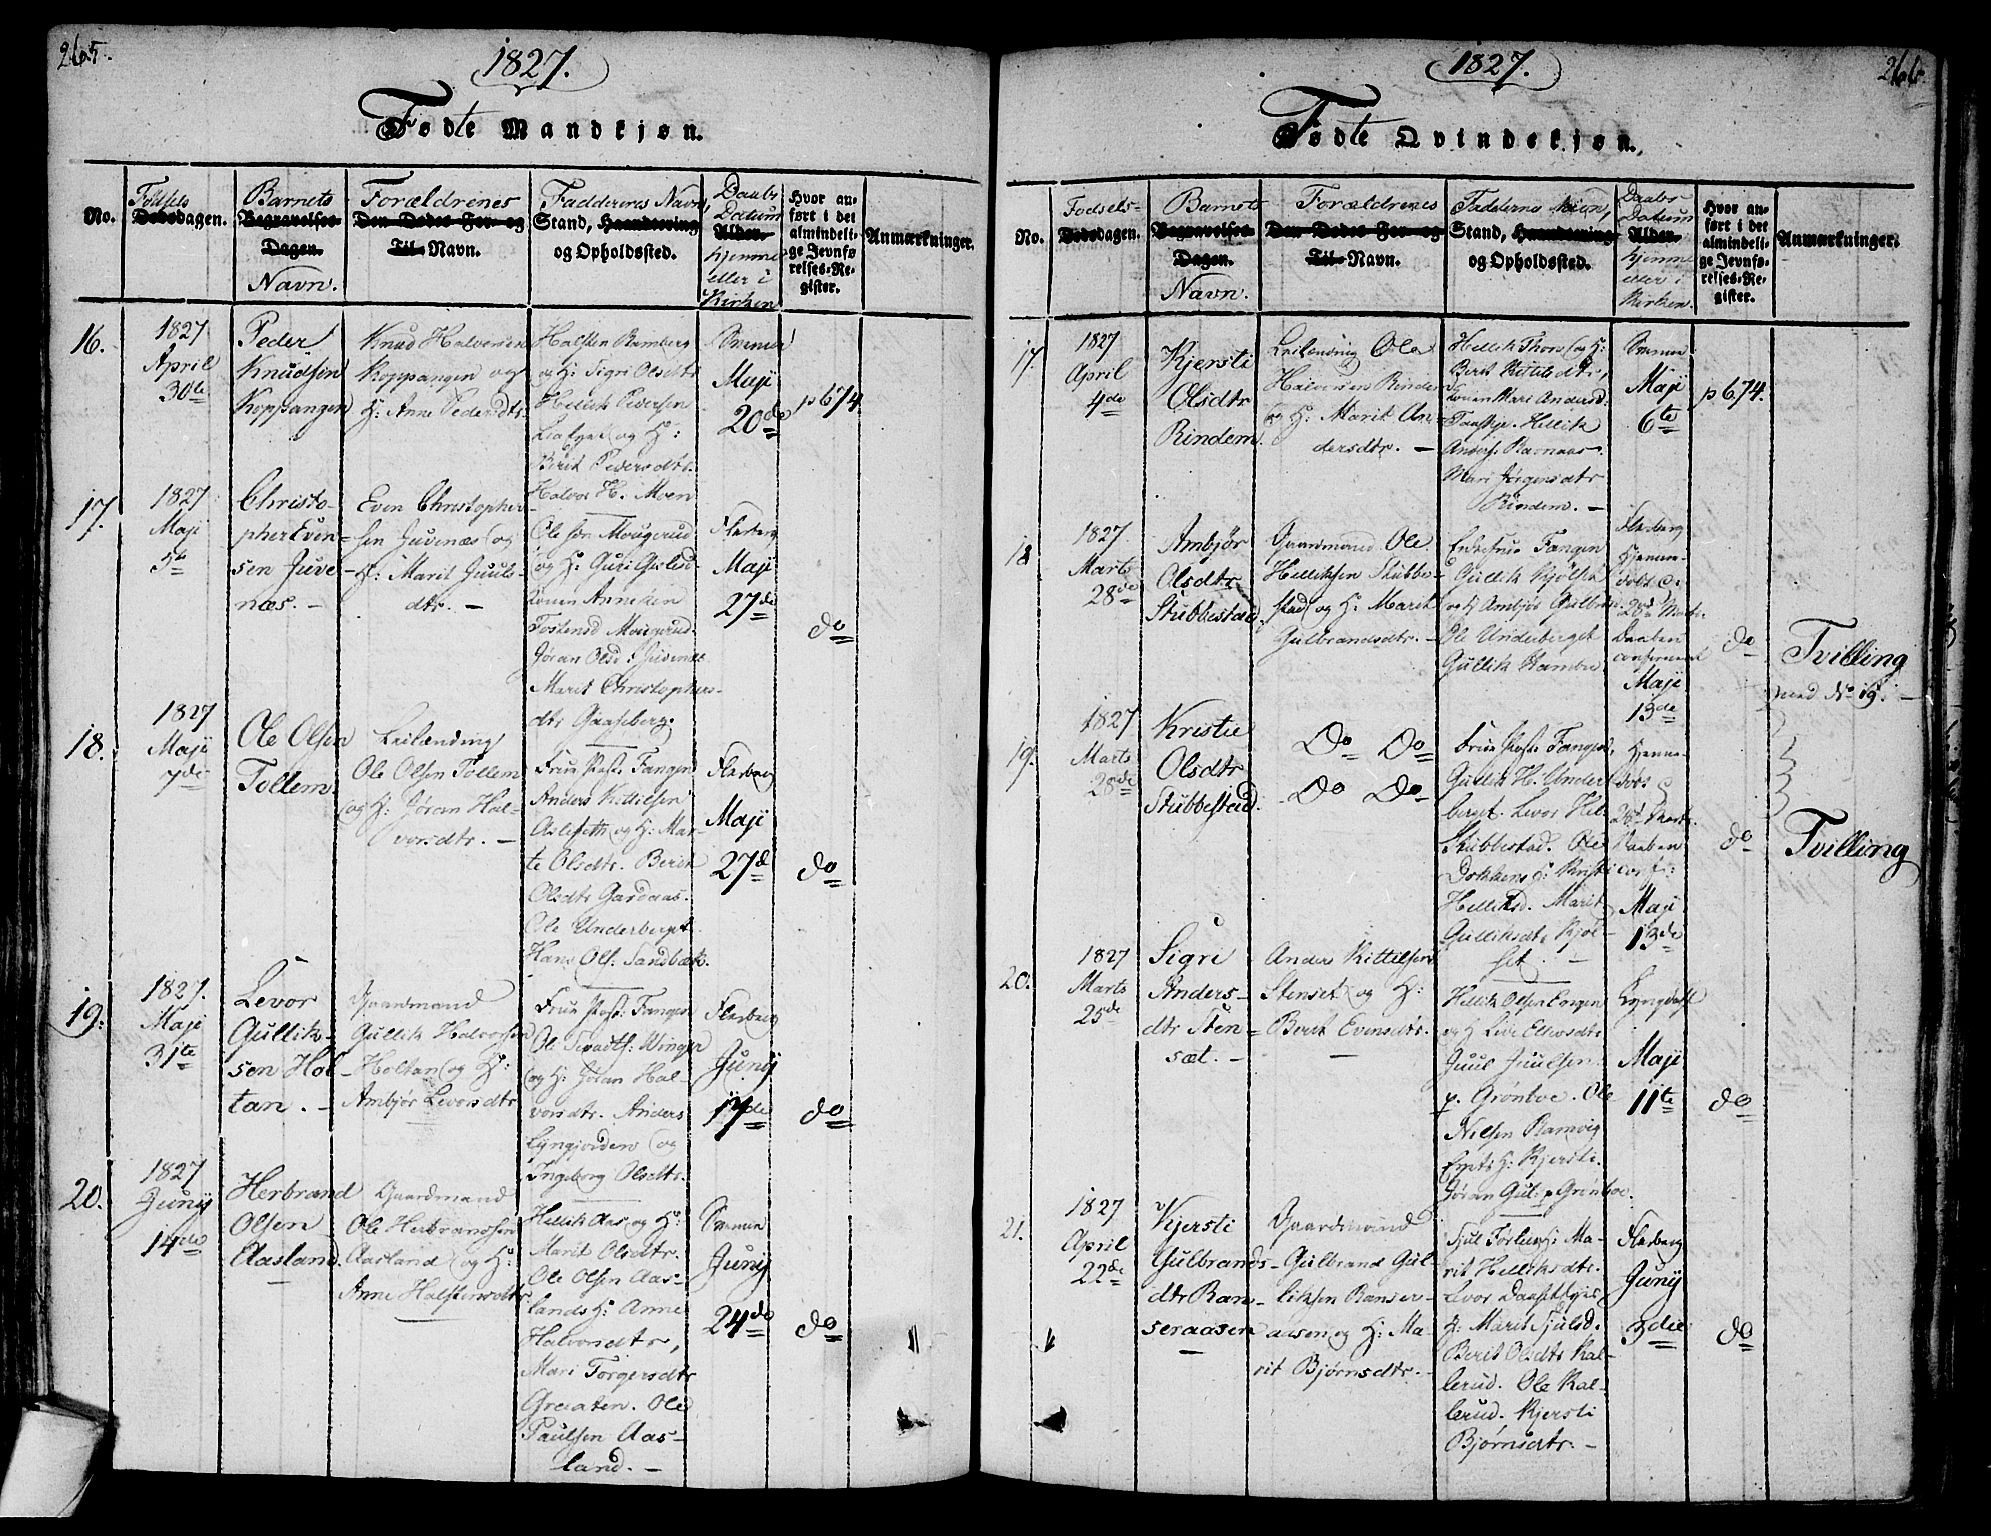 265.
1827.
Fødte Mandkjøn.
No.
Fødsels
Dødsdagen.
Barnets
Begravelses-
Dagen.
Navn.
Forældrenes
Den Dødes For- og
Til- Navn.
Faddernes Navn,
Stand, Haandtering
og Opholdssted.
Daabs
Datum
Alder.
hjemme
eller i
Kirken
Hvor an-
ført i det
almindeli-
ge Jevnfø-
relses-Re-
gister.
Anmærkninger.
16.
1827
April
30te
Peder
Knudsen
Koppangen
Knud Halvorsen
Koppangen og
H: Anne Pedersdtr.
Halsten Bamberg
og H: Sigri Olsdtr
Hellik Pedersen
og H:
Berit Pedersdtr.
Halvor H. Moen
Svenne
Maji
20de
p 674
17.
1827
Maji
5te
Christo-
pher Even-
sen Juve-
næs. -
Even Christopher-
sen Juvenæs og
H: Marit Juuls-
dtr. -
Ole sen Mougerud
og H: Guri Gislesd
Konen Anneken
Tostensd Mougerud.
Jøran Olsd: Juvenæs
Marit Christophers-
dtr Gaaseberg.
Flesberg
Maji
27de
do
18.
1827
Maji
7de
Ole Olsen
Tollem.
Leilænding
Ole Olsen Tollem
og H: Jøran Hal-
vorsdtr. -
Frue Past: Fangen
Anders Kittilsen
Aslefeth og H: Mar-
te Olsdtr. Berit
Olsdtr Gardaas.
Ole Underberget.
Hans Ols: Sandbæk.
Flesberg
Maji
27de
do
19.
1827.
Maji
31te
Levor
Gullik-
sen Hol-
tan. -
Gaardmand
Gullik Halvorsen
Holtan og H:
Ambjør Levorsdtr
Frue Past: Fangen
Ole Winger
og H: Jøran Hal-
vorsdtr. Anders
Lyngjorden og
Ingeborg Olsdtr.
Flesberg
Junij
17de
do
20.
1827
Junij
14de
Herbrand
Olsen
Aasland.
Gaardmand
Ole Herbrandsen
Aasland og H:
Anne Halstensdtr.
Hellik Aas og H:
Marit Olsdtr.
Ole Olsen Aas-
lands H: Anne
Halvorsdtr,
Mari Torgersdtr
Græaten. Ole
Paulsen Aas-
land. -
Svenne
Junij
24de
do
266
1827.
Fødte Qvindekjøn.
No.
Fødsels-
Dødsdagen.
Barnets
Begravelses-
Dagen.
Navn.
Forældrenes
Den Dødes For- og
Til- Navn.
Faddernes Navn,
Stand, Haandtering
og Opholdssted.
Daabs-
Datum
Alder.
hjemme
eller i
Kirken.
Hvor an-
ført i det
almindeli-
ge Jevnfø-
relses-Re-
gister.
Anmærkninger.
17.
1827
April
4de
Kjersti
Olsdtr
Rindem.
Leilænding Ole
Halvorsen Rindem
og H: Marit An-
dersdtr. -
Hellik Thors og H:
Berit Kittilsdtr,
Konen Mari Andersd:
Hellik
Anders: Bavnaas.
Mari Jørgensdtr
Rindem. -
Svenne
Maji
6te
p 674.
18
1827.
Marts
28de
Ambjør
Olsdtr
Stubbestad.
Gaardmand Ole
Helliksen Stubbe-
stad og H: Marit
Gulbrandsdtr. -
Fangen
Gullik Kjølset
og H Ambjør Gulbr:
Ole Underberget
Gullik
Flesberg
Hjemme-
døbt d:
28de Marts.
Daaben
confirmeret
Maji
13de
do
Tvilling
med No 19. -
19.
1827
Marts
28de
Kristie
Olsdtr
Stubbestad.
Do Do
Do Do
Frue Past: Fangen,
Gullik H. Under
berget. Levor Hel:
Stubbestad. Ole
Dokkens H: Kristi
Helliksd. Marit
Gulliksdtr Kjøl-
set. -
Hjemme-
døbt d
28de Marts.
Daaben
conf:
Maji
13de
do
Tvilling
20.
1827
Marts
25de
Sigri
Anders-
dtr Sten-
sæt. -
Anders Kittelsen
Stenset og H:
Berit Evensdtr.
-
Hellik Olsen
og H Live Ellevsdtr
Juul Juulsen
p. Grøntve. Ole
Nielsen Bamvig
H: Kjersti.
Jøran Gul: p Grøntve.
Lyngdahl
Maji
11te
do
21.
1827
April
22de
Kjersti
Gulbrands-
dtr Ban-
seraasen
-
Gaardmand
Gulbrand Gul-
liksen Banser-
aasen og H: Ma-
rit Bjørnsdtr. -
H: Ma-
rit Helliksdtr.
Levor
H: Marit Fjulsd.
Berit Olsdtr Kal-
lerud. Ole Kal-
lerud. Kjersti
Bjørnsdtr. -
Flesberg
Junij
3die
do